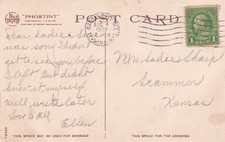 "PHOSTINT"
POST CARD
Dear Sadie - So
was sorry I didn't
get to see you before
I left but didn't
know it myself
will write later
Love to all
Ellen
Mrs Sadie Sharp
Scammon
Kansas
THIS SPACE MAY BE USED FOR MESSAGE
THIS SPACE FOR THE ADDRESS